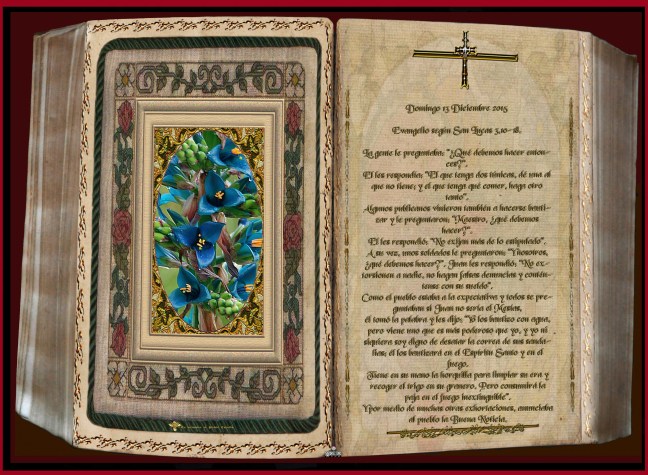 Domingo 13 Diciembre 2015
Evangelio según San Lucas 3,10-18.
La gente le preguntaba: "¿Qué debemos hacer enton-
ces?".
El les respondía: "El que tenga dos túnicas, dé una al
que no tiene; y el que tenga qué comer, haga otro
tanto".
Algunos publicanos vinieron también a hacerse bauti-
zar y le preguntaron: "Maestro, ¿qué debemos
hacer?".
El les respondió: "No exijan más de lo estipulado".
A su vez, unos soldados le preguntaron: "Y nosotros,
¿qué debemos hacer?". Juan les respondió: "No ex-
torsionen a nadie, no hagan falsas denuncias y contén-
tense con su sueldo".
Como el pueblo estaba a la expectativa y todos se pre-
guntaban si Juan no sería el Mesías,
él tomó la palabra y les dijo: "Yo los bautizo con agua,
pero viene uno que es más poderoso que yo, y yo ni
siquiera soy digno de desatar la correa de sus sanda-
lias; él los bautizará en el Espíritu Santo y en el
fuego.
Tiene en su mano la horquilla para limpiar su era y
recoger el trigo en su granero. Pero consumirá la
paja en el fuego inextinguible".
Y por medio de muchas otras exhortaciones, anunciaba
al pueblo la Buena Noticia.